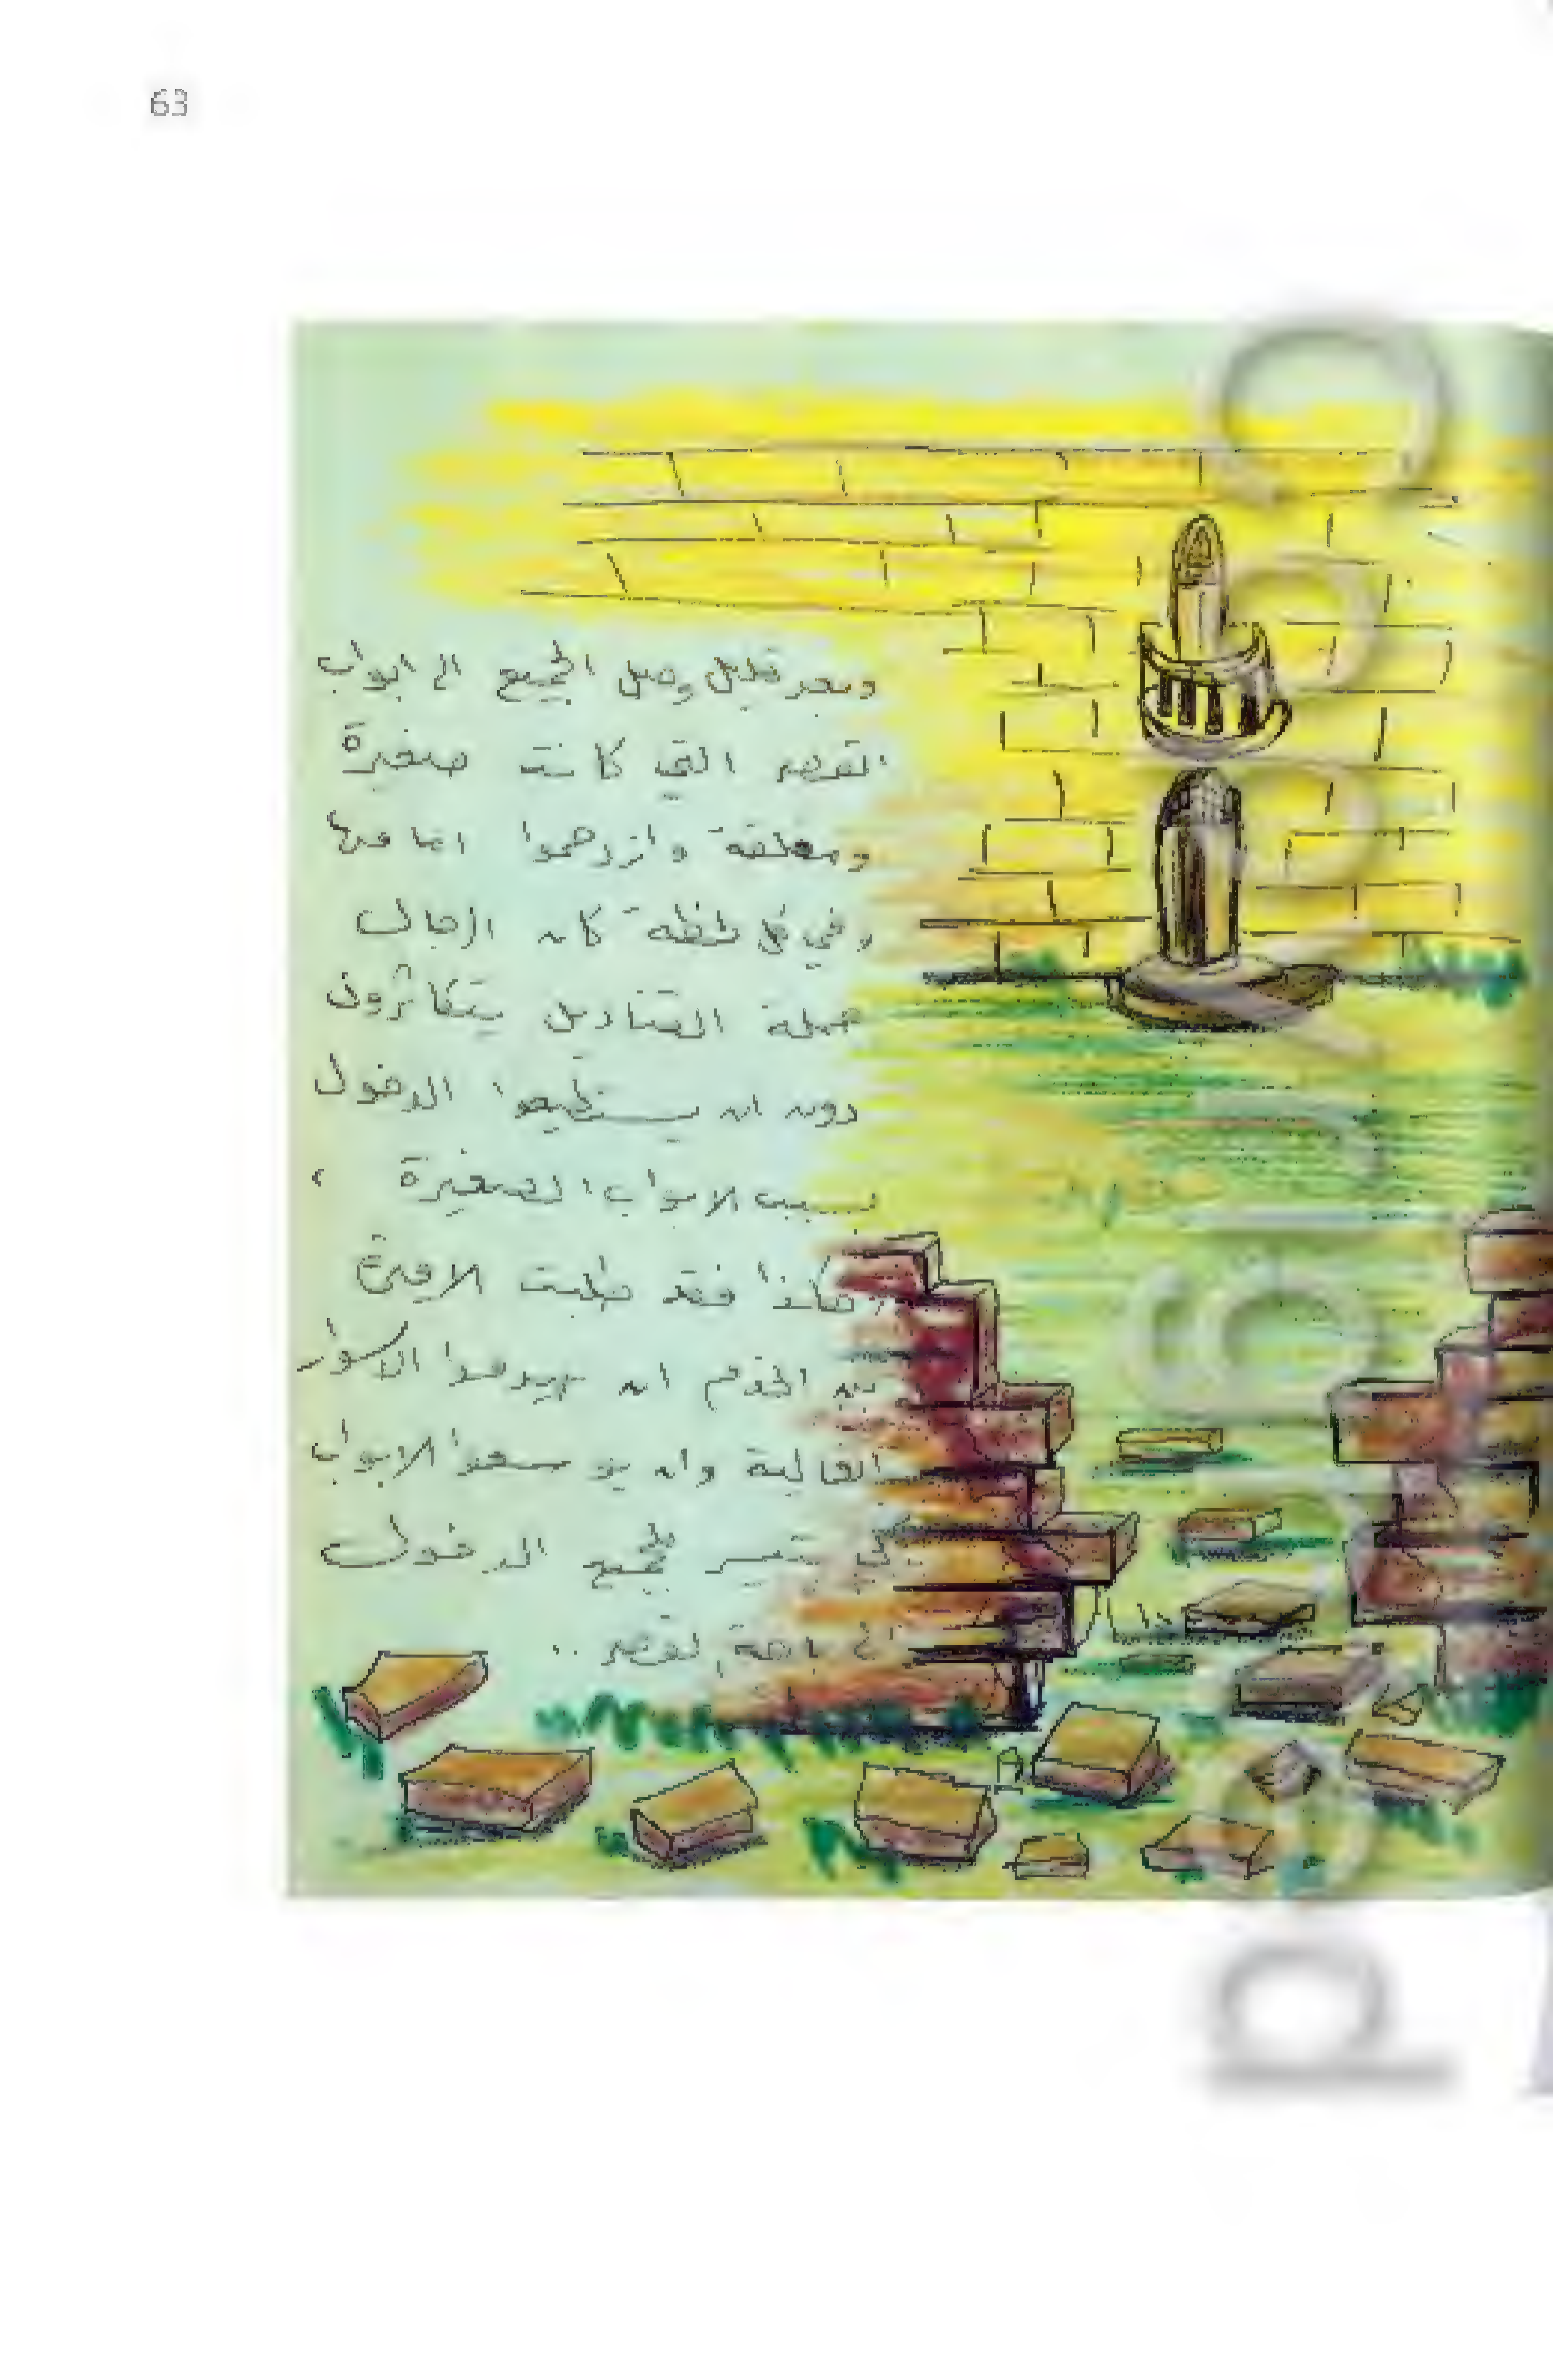 63
وبعد قليل وصل الجميع الى ابواب
القصر التي كانت صغيرة
ومغلقة وازدحموا امامها
وفي كل لحظة كان الرجال
حملة القناديل يتكاثرون
دون ان يستطيعوا الدخول
بسبب الابواب الصغيرة ،
وهكذا فقد طلبت الاميرة
من الخدم ان يهدموا الاسوار
العالية وان يوسعوا الابواب
كي يتيسر للجميع الدخول
الى باحة القصر ..